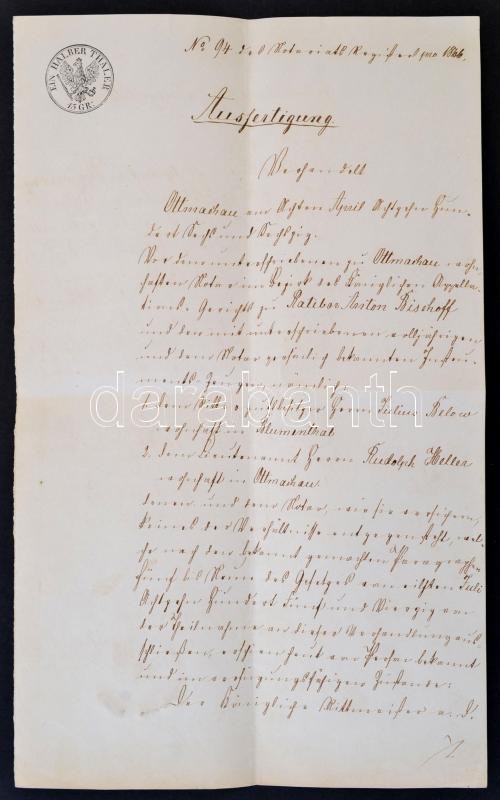 EIN HALBER THALER
15 GR.
No 94 des Notariats Register pro 1866.
Ausfertigung
Verhandelt
Ottmachau am Achten April Achtzehn Hun-
dert Sechs und Sechzig.
Vor dem unterschriebenen zu Ottmachau wohn-
haften Notar im Bezirk des Königlichen Appella-
tions-Gerichts zu Ratibor Anton Bischoff
und den mitunterschriebenen volljährigen
und dem Notar persönlich bekannten Instru-
ments Zeugen, nämlich:
1. dem Herrn Julius Below
wohnhaft in Blumenthal
2. dem Lieutenannt Herrn Rudolph Heller
wohnhaft in Ottmachau.
denen und dem Notar, wie sie versichern,
keines der Verhältnisse entgegensteht, wel-
che nach den bekannt gemachten Paragraphen
Fünf bis Neun des Gesetzes vom eilften Juli
Achtzehn Hundert Fünf und Vierzig von
der Theilnahme an dieser Verhandlung aus-
schließen, erschien heut von Person bekannt
und im verfügungsfähigen Zustande:
Der Königliche Rittmeister a. d.
darabanth